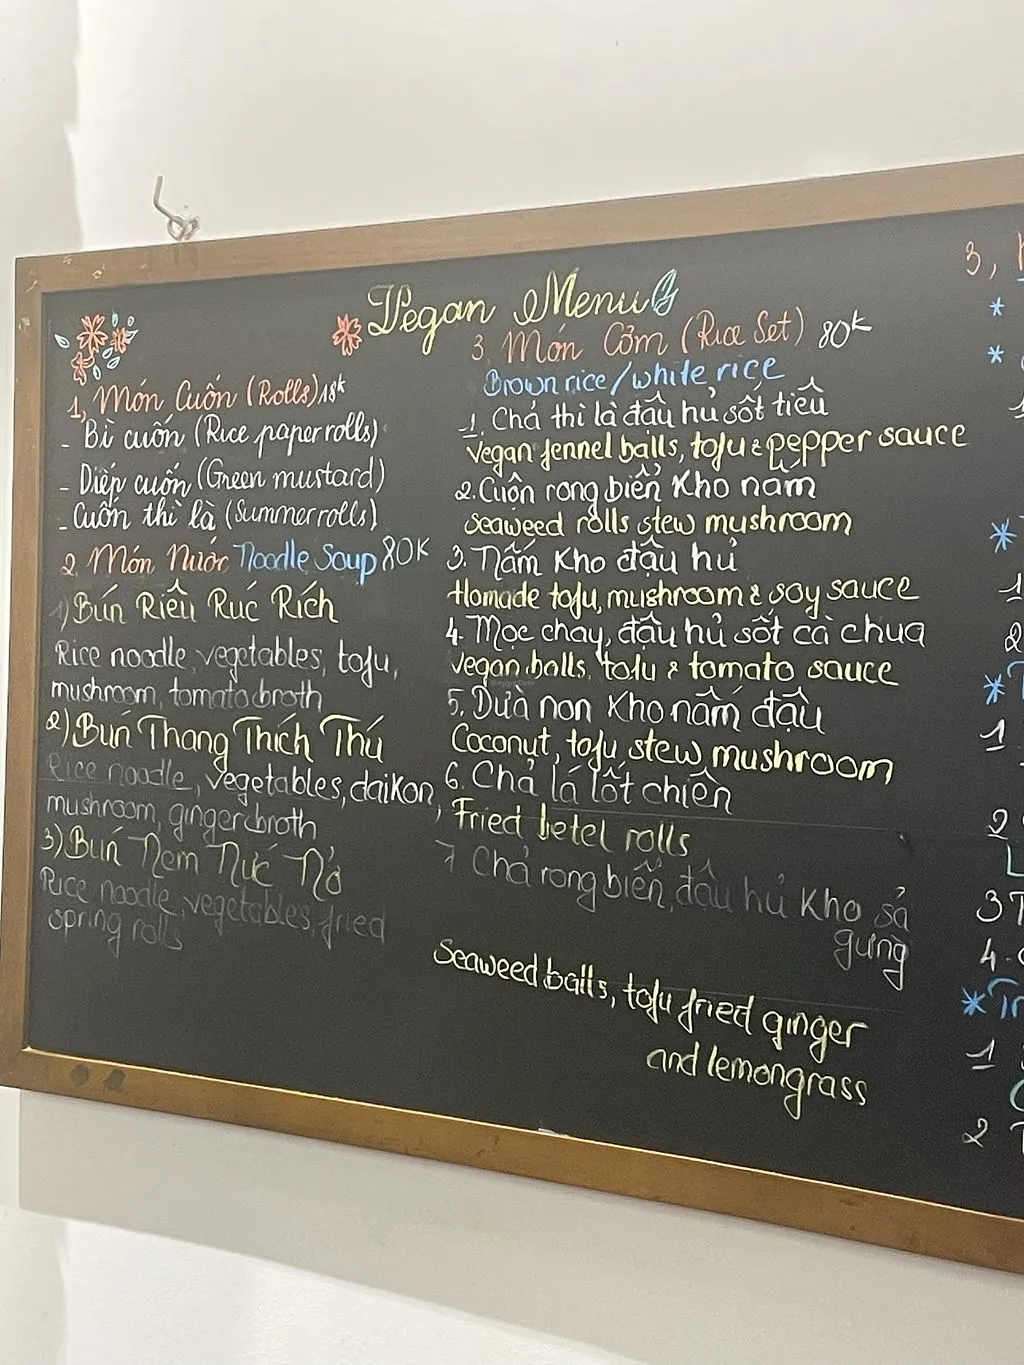 Vegan Menu
1, Món Cuốn (Rolls) 18k
- Bì cuốn (Rice paper rolls)
- Diếp cuốn (Green mustard)
- Cuốn thì là (Summer rolls)
2, Món Nước Noodle Soup 80K
1) Bún Riêu Rúc Rích
Rice noodle, vegetables, tofu,
mushroom, tomato broth
2) Bún Thang Thích Thú
Rice noodle, vegetables, daikon,
mushroom, ginger broth
3) Bún Nem Nức Nở
Rice noodle, vegetables, fried
spring rolls
3, Món Cơm (Rice Set) 80k
Brown rice/white rice
1. Chả thì là đậu hủ sốt tiêu
Vegan fennel balls, tofu & pepper sauce
2. Cuộn rong biển kho nấm
Seaweed rolls stew mushroom
3. Nấm Kho đậu hủ
Homade tofu, mushroom & soy sauce
4. Mọc chay, đậu hủ sốt cà chua
Vegan balls, tofu & tomato sauce
5. Dừa non Kho nấm đậu
Coconut, tofu stew mushroom
6. Chả lá lốt chiên
Fried betel rolls
7 Chả rong biển, đậu hủ kho sả
gừng
Seaweed balls, tofu fried ginger
and lemongrass
3,
*
*
*
1
2
*
1
2
3
4.
*Tr
1
2